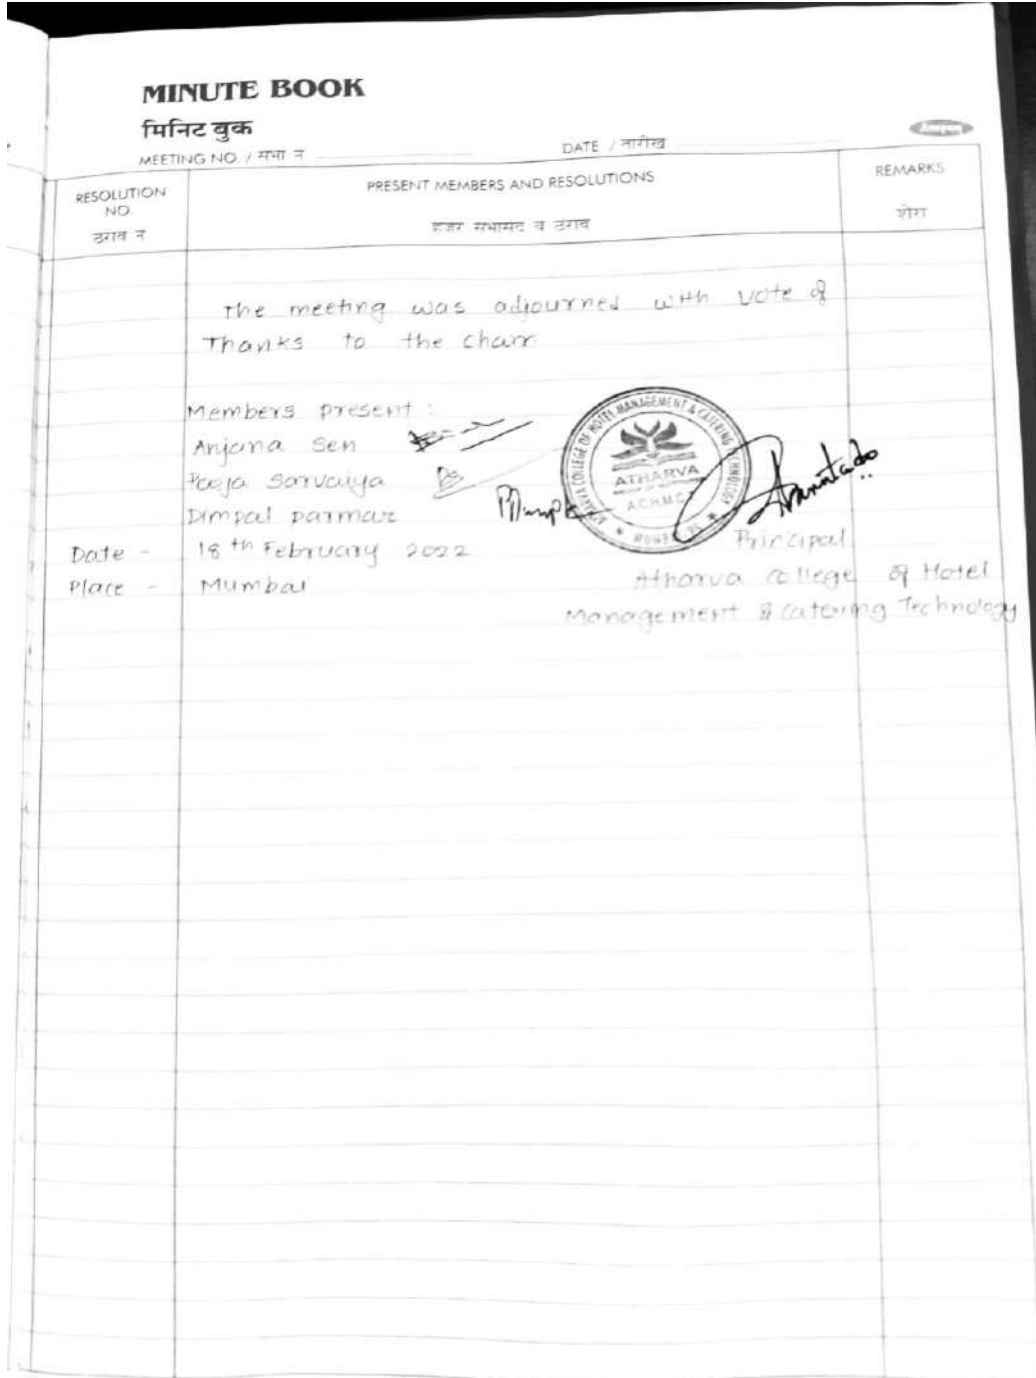 MINUTE BOOK
मिनिट बुक
MEETING NO. / सभा नं
DATE / तारीख
RESOLUTION NO.
ठराव नं
PRESENT MEMBERS AND RESOLUTIONS
हजर सभासद व ठराव
REMARKS
शेरा
The meeting was adjourned with vote of
Thanks to the chair.
Members present :
Anjana Sen
Pooja Sarvaiya
Dimpal parmar
ATHARVA COLLEGE OF HOTEL MANAGEMENT & CATERING TECHNOLOGY
ATHARVA
A.C.H.M.C.T
Principal
Date - 18th February 2022
Place - Mumbai
Atharva College of Hotel
Management & Catering Technology